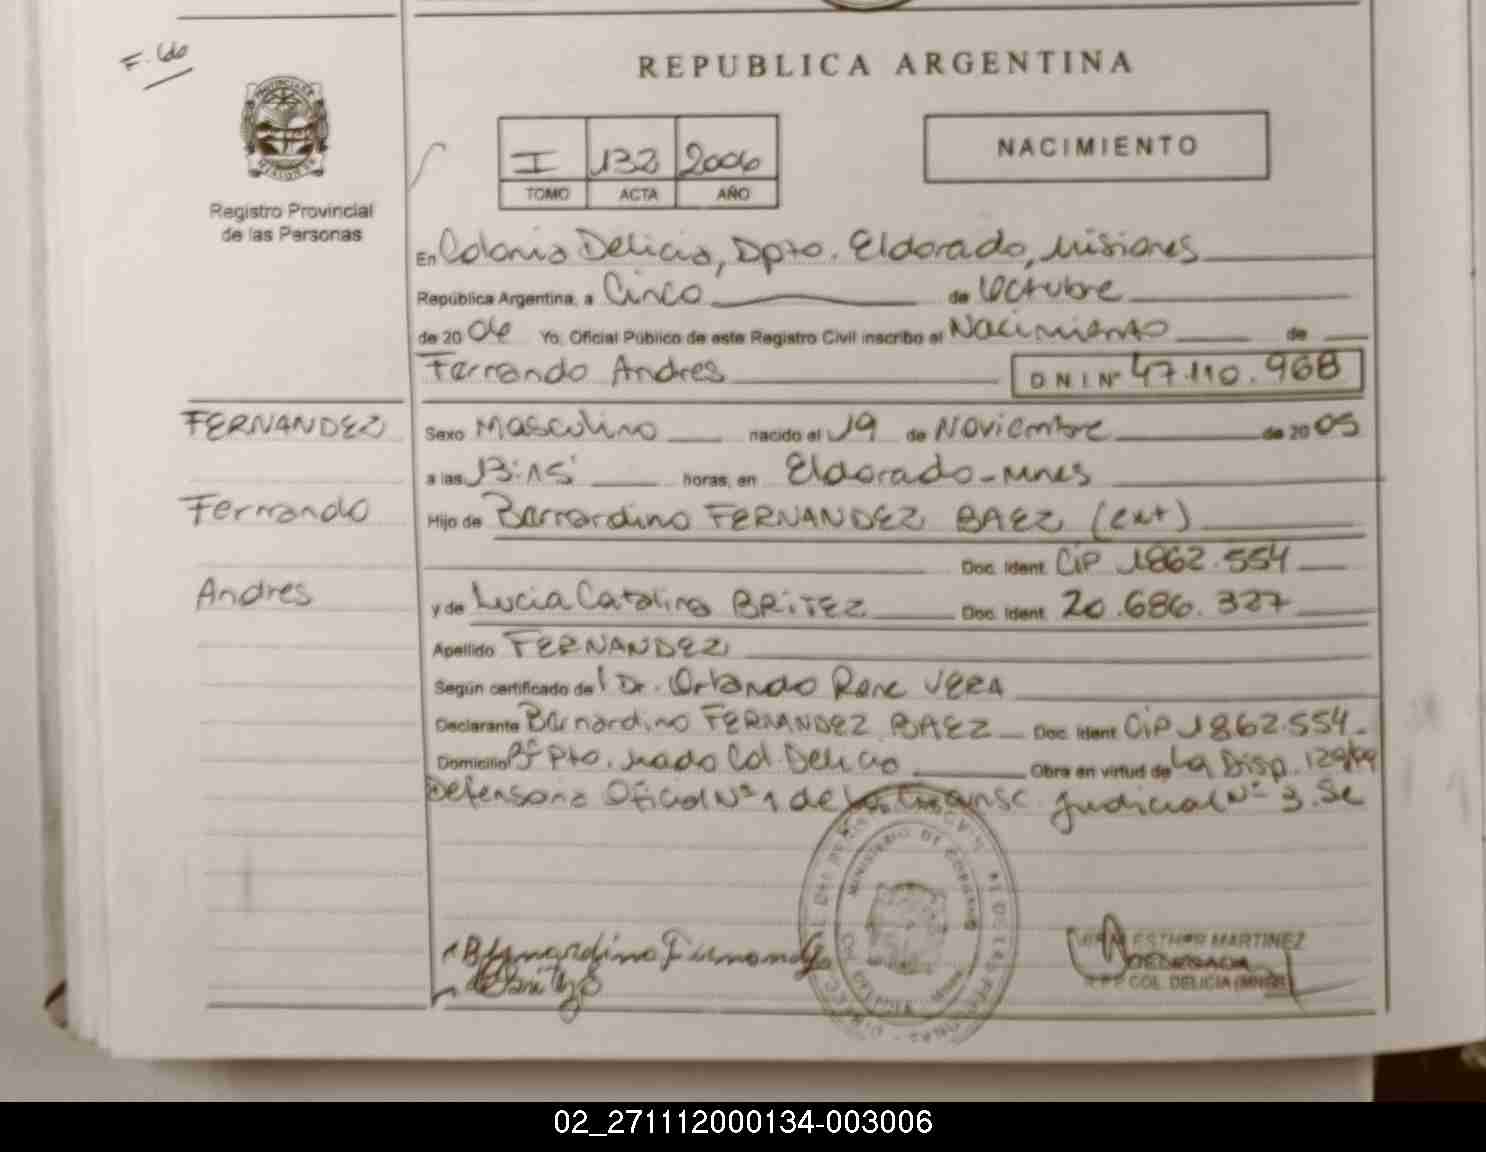 REPUBLICA ARGENTINA
I 132 2006
TOMO ACTA AÑO
NACIMIENTO
Registro Provincial
de las Personas
En Colonia Delicia, Dpto. Eldorado, Misiones
República Argentina, a Cinco de Octubre
de 20 06 Yo, Oficial Público de este Registro Civil inscribo el Nacimiento de
Fernando Andres D N I Nº 47.110.968
FERNANDEZ
Fernando
Andres
Sexo Masculino nacido el 19 de Noviembre de 20 05
a las 13:15 horas, en Eldorado - Mnes
Hijo de Bernardino FERNANDEZ BAEZ (ext)
Doc. Ident. CiP 1862.554
y de Lucia Catalina BRITEZ Doc. Ident. 20.686.327
Apellido FERNANDEZ
Según certificado del Dr. Orlando Rene VERA
Declarante Bernardino FERNANDEZ BAEZ Doc. Ident. CiP 1862.554
Domicilio Pto. Col. Delicia Obra en virtud de La Disp. 129/99
Defensoria Oficial Nº 1 de la Circunsc. Judicial Nº 3. Se
MINISTERIO DE GOBIERNO
COL. DELICIA - Mnes
ESTHER MARTINEZ
DELEGADA
COL. DELICIA (MNES)
02_271112000134-003006